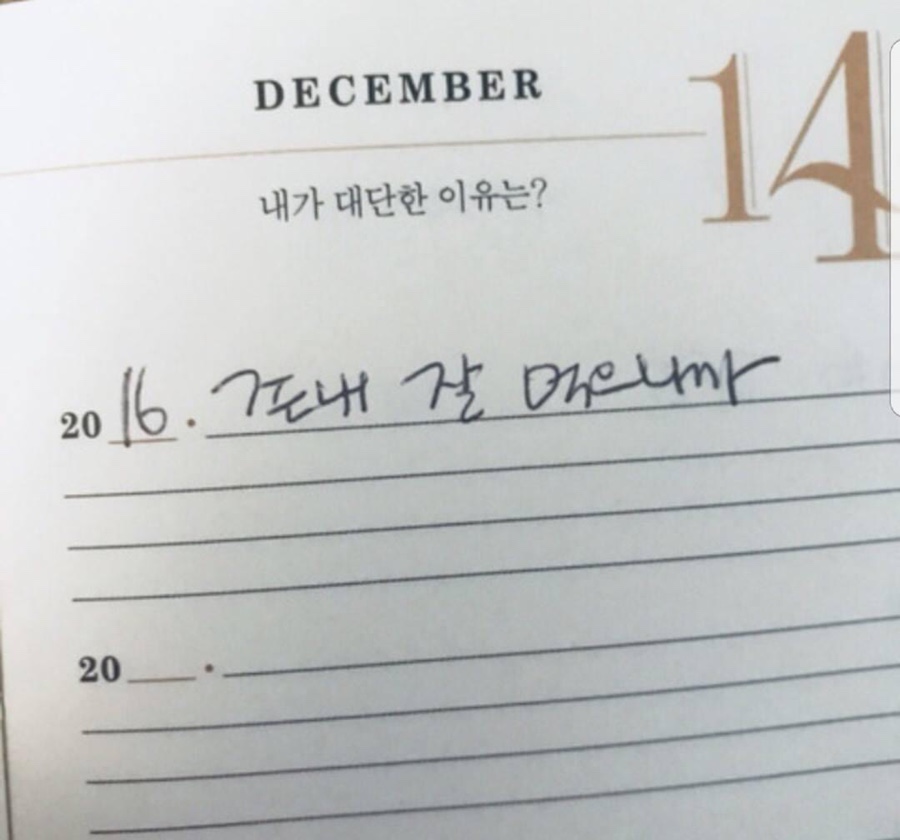 DECEMBER 14
내가 대단한 이유는?
2016. 존내 잘 먹으니까
20